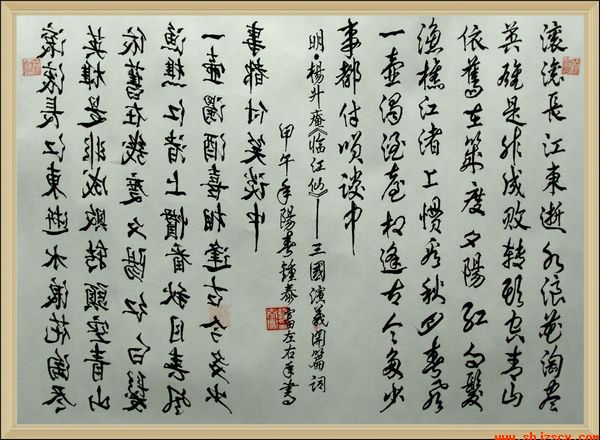 滚滚長江東逝水浪花淘尽
英雄是非成败转头空青山
依舊在幾度夕陽红白髮
渔樵江渚上惯看秋月春风
一壶浊酒喜相逢古今多少
事都付笑谈中
明楊升庵《临江仙》——三國演義開篇词
甲午年陽春鍾泰富左右手書
事都付笑谈中
一壺濁酒喜相逢古今多少
渔樵江渚上慣看秋月春風
依舊在幾度夕陽红白髮
英雄是非成敗轉頭空青山
滚滚長江東逝水浪花淘尽
www.sbjzscw.com